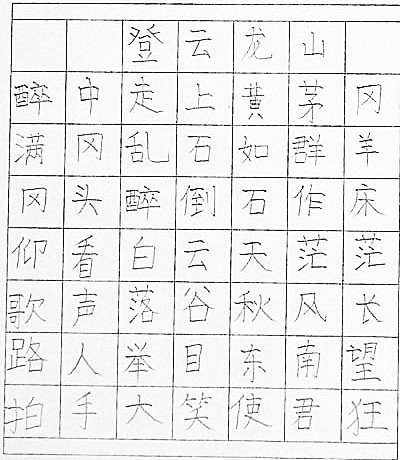 登云龙山
醉中走上黄茅冈
满冈乱石如群羊
冈头醉倒石作床
仰看白云天茫茫
歌声落谷秋风长
路人举目东南望
拍手大笑使君狂